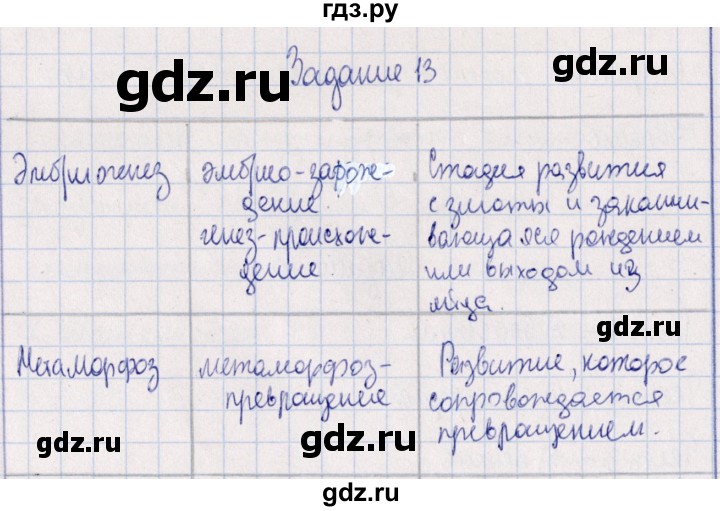 гдз.ру
Задание 13
gdz.ru
gdz.ru
Эмбриогенез
эмбрио-зарож-
дение.
генез-происхож-
дение.
Стадия развития
с зиготы и заканчи-
вающаяся рождением
или выходом из
яйца.
gdz.ru
Метаморфоз
метаморфоз-
превращение
Развитие, которое
сопровождается
превращением.
gdz.ru
gdz.ru
gdz.ru
gdz.ru